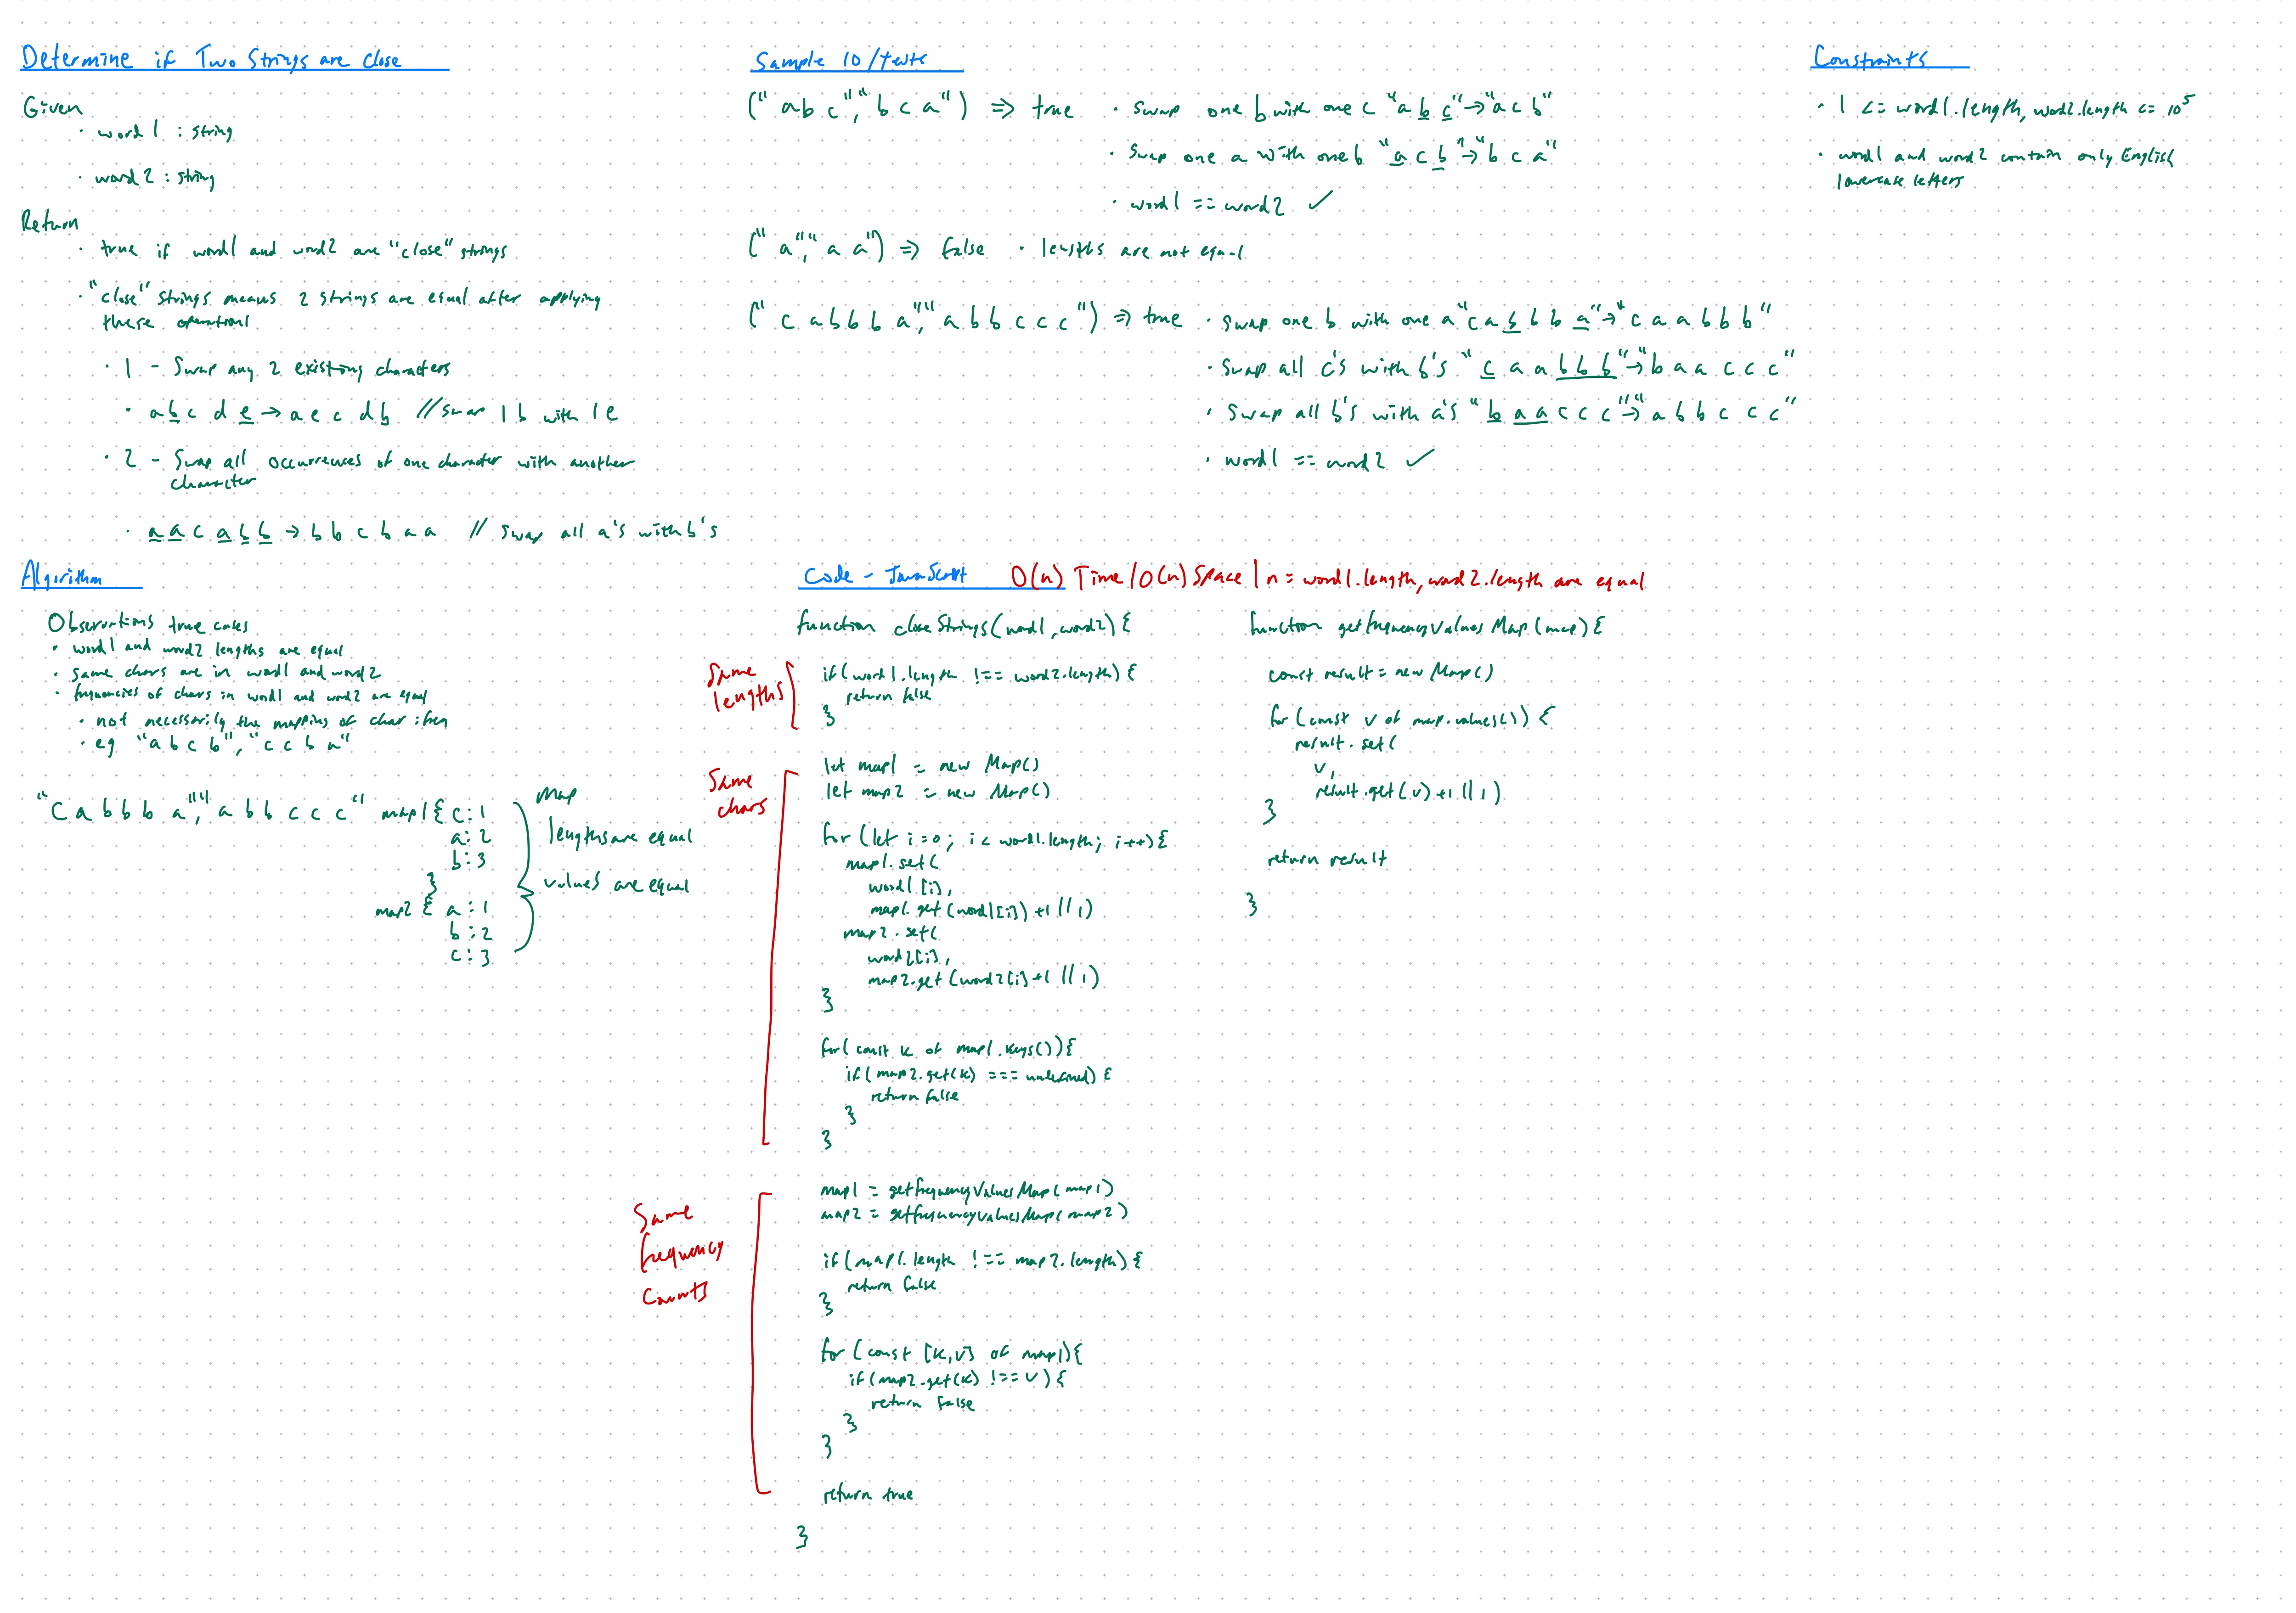 Determine if Two Strings are close
Given
· word1 : string
· word2 : string
Return
· true if word1 and word2 are "close" strings
· "close" strings means 2 strings are equal after applying
these operations
· 1 - Swap any 2 existing characters
· a b c d e → a e c d b // swap 1 b with 1 e
· 2 - Swap all occurrences of one character with another
character
· a a c a b b → b b c b a a // swap all a's with b's
Sample IO/tests
("abc", "bca") => true · swap one b with one c "abc" → "acb"
· swap one a with one b "acb" → "bca"
· word1 == word2 ✓
("a", "aa") => false · lengths are not equal
("cabbba", "abbccc") => true · swap one b with one a "cabbba" → "caabbb"
· swap all c's with b's "caabbb" → "baaccc"
· swap all b's with a's "baaccc" → "abbccc"
· word1 == word2 ✓
Constraints
· 1 <= word1.length, word2.length <= 10⁵
· word1 and word2 contain only English
lowercase letters
Algorithm
Observations true cases
· word1 and word2 lengths are equal
· same chars are in word1 and word2
· frequencies of chars in word1 and word2 are equal
· not necessarily the mapping of char : freq
· eg "abcb", "ccba"
"cabbba", "abbccc" map1 { c: 1
a: 2
b: 3
}
map2 { a: 1
b: 2
c: 3
map
lengths are equal
values are equal
Code - JavaScript O(n) Time / O(n) Space | n = word1.length, word2.length are equal
Same
lengths
Same
chars
Same
frequency
counts
function closeStrings(word1, word2) {
if(word1.length !== word2.length) {
return false
}
let map1 = new Map()
let map2 = new Map()
for (let i=0; i < word1.length; i++) {
map1.set(
word1[i],
map1.get(word1[i]) +1 || 1)
map2.set(
word2[i],
map2.get(word2[i] +1 || 1)
}
for(const k of map1.keys()) {
if(map2.get(k) === undefined) {
return false
}
}
map1 = getfrequencyValuesMap(map1)
map2 = getfrequencyValuesMap(map2)
if(map1.length !== map2.length) {
return false
}
for (const [k,v] of map1) {
if(map2.get(k) !== v) {
return false
}
}
return true
}
function getfrequencyValuesMap(map) {
const result = new Map()
for (const v of map.values()) {
result.set(
v,
result.get(v) +1 || 1)
}
return result
}